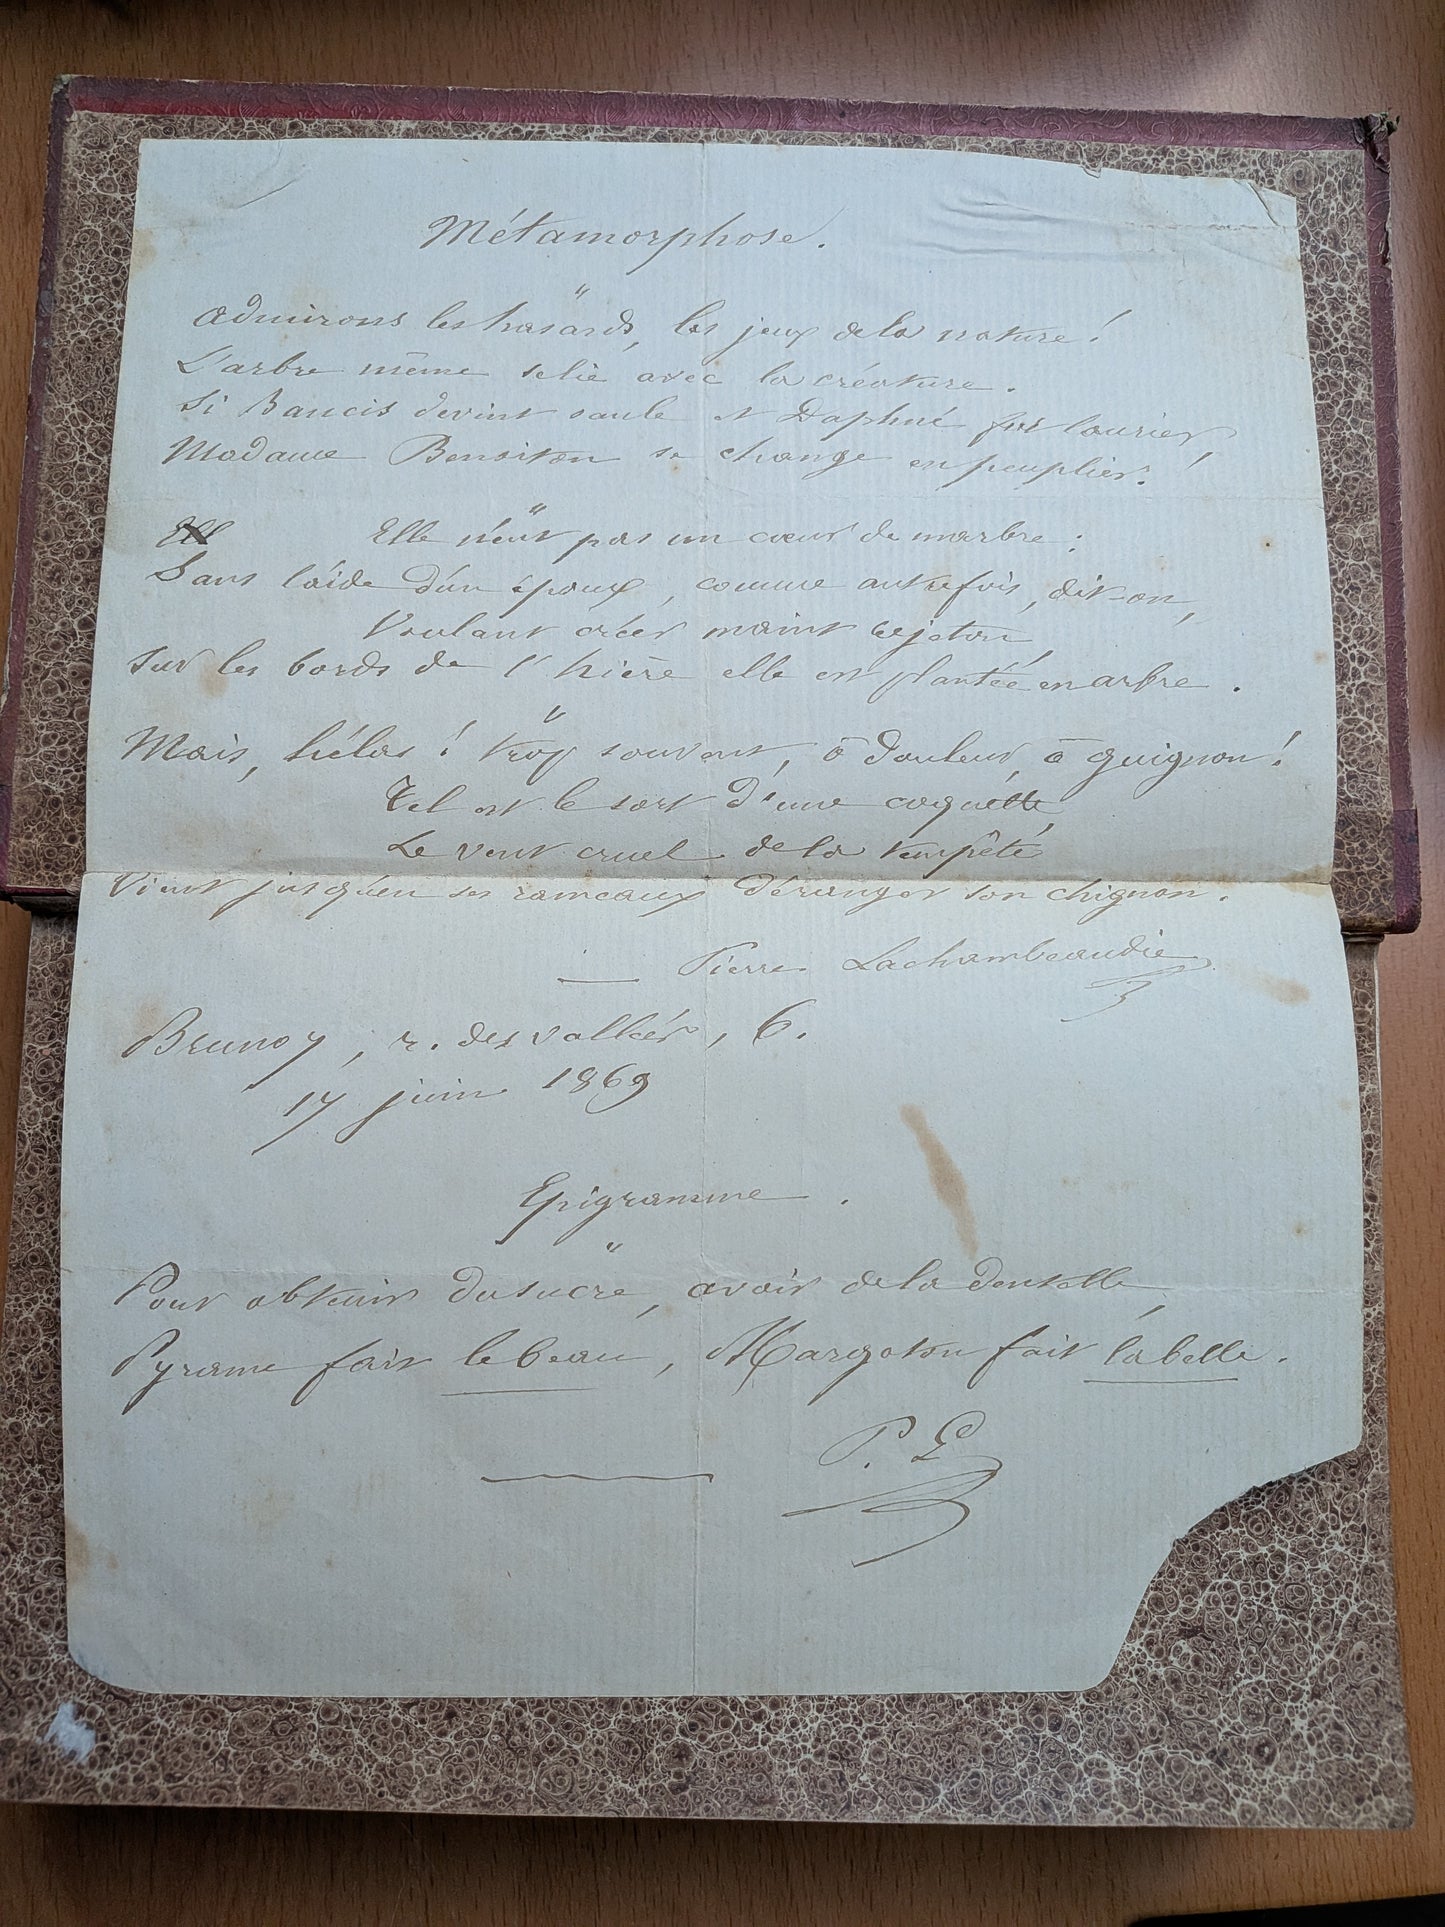 Métamorphose.
"
Admirons les hasards, les jeux de la nature!
L'arbre même se lie avec la créature.
Si Baucis devint saule et Daphné fut laurier,
Madame Benoiton se change en peuplier!
"
Ell Elle n'eut pas un cœur de marbre:
Sans l'aide d'un époux, comme autrefois, dit-on,
Voulant créer maint rejeton,
Sur les bords de l'hière elle est plantée en arbre.
"
Mais, hélas! trop souvent, ô douleur, ô guignon!
Tel est le sort d'une coquette,
Le vent cruel de la tempête
Vient jusqu'en ses rameaux déranger son chignon.
Pierre Lachambeaudie
Brunoy, r. des vallées, 6.
17 juin 1869
Epigramme.
"
Pour obtenir du sucre, avoir de la dentelle,
Pyrame fait le beau, Margoton fait la belle.
P. L